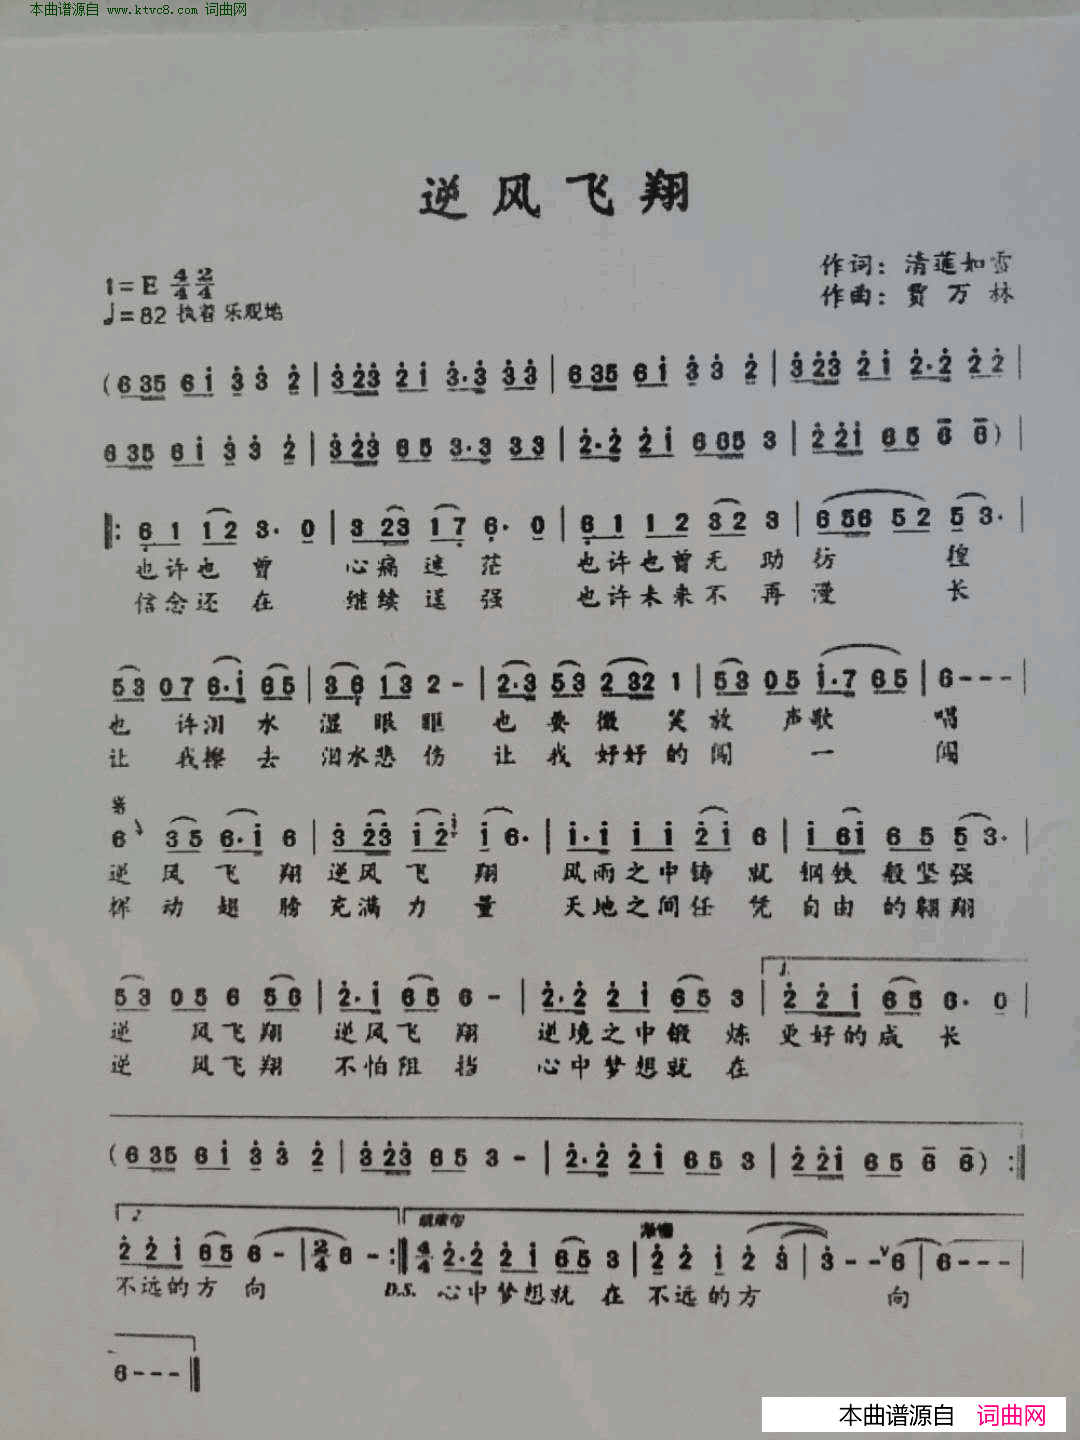 本曲谱源自 www.ktvc8.com 词曲网
逆风飞翔
1=E 4/4 2/4
作词：清莲如雪
♩=82 执着 乐观地
作曲：贾万林
(6 35 6 i 3 3 2 | 3 23 2 i 3·3 3 3 | 6 35 6 i 3 3 2 | 3 23 2 i 2·2 2 2 |
6 35 6 i 3 3 2 | 3 23 6 5 3·3 3 3 | 2·2 2 i 6 65 3 | 2 2i 6 5 6 6) |
‖: 6 1 12 3· 0 | 3 23 17 6· 0 | 6 1 1 2 32 3 | 6 56 5 2 5 3· |
也许也曾 心痛迷茫 也许也曾无助彷徨
信念还在 继续逞强 也许未来不再漫长
53 07 6·i 65 | 36 13 2 - | 2·3 53 2 32 1 | 53 05 i·7 65 | 6 - - - |
也许泪水湿眼眶 也要微笑放声歌唱
让我擦去泪水悲伤 让我好好的闯一闯
6 35 6·i 6 | 3 23 i 2 i 6· | i·i i i 2i 6 | i 6i 6 5 5 3· |
逆风飞翔 逆风飞翔 风雨之中铸就钢铁般坚强
挥动翅膀充满力量 天地之间任凭自由的翱翔
53 05 6 56 | 2·i 65 6 - | 2·2 2 i 65 3 | 1. 2 2 i 65 6· 0 |
逆风飞翔 逆风飞翔 逆境之中锻炼更好的成长
逆风飞翔 不怕阻挡 心中梦想就在
(6 35 6 i 3 3 2 | 3 23 6 5 3 - | 2·2 2 i 6 5 3 | 2 2i 6 5 6 6) :‖
2. 结束句 渐慢
2 2 i 65 6 - | 2/4 6 - :‖ 4/4 2·2 2 i 65 3 | 2 2 i 2 3 | 3 - - 6 | 6 - - - |
不远的方向 D.S. 心中梦想就在不远的方向
6 - - - ‖
本曲谱源自 词曲网